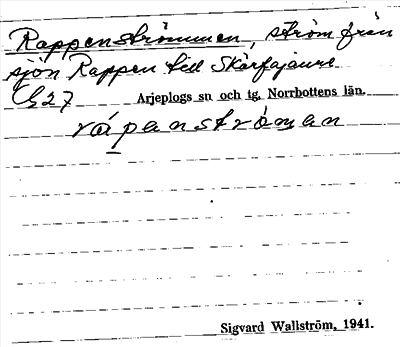 Rappenströmmen, ström från
sjön Rappen till Skärfajaure
27 Arjeplogs sn och tg. Norrbottens län.
rápanstrǿmən
Sigvard Wallström, 1941.